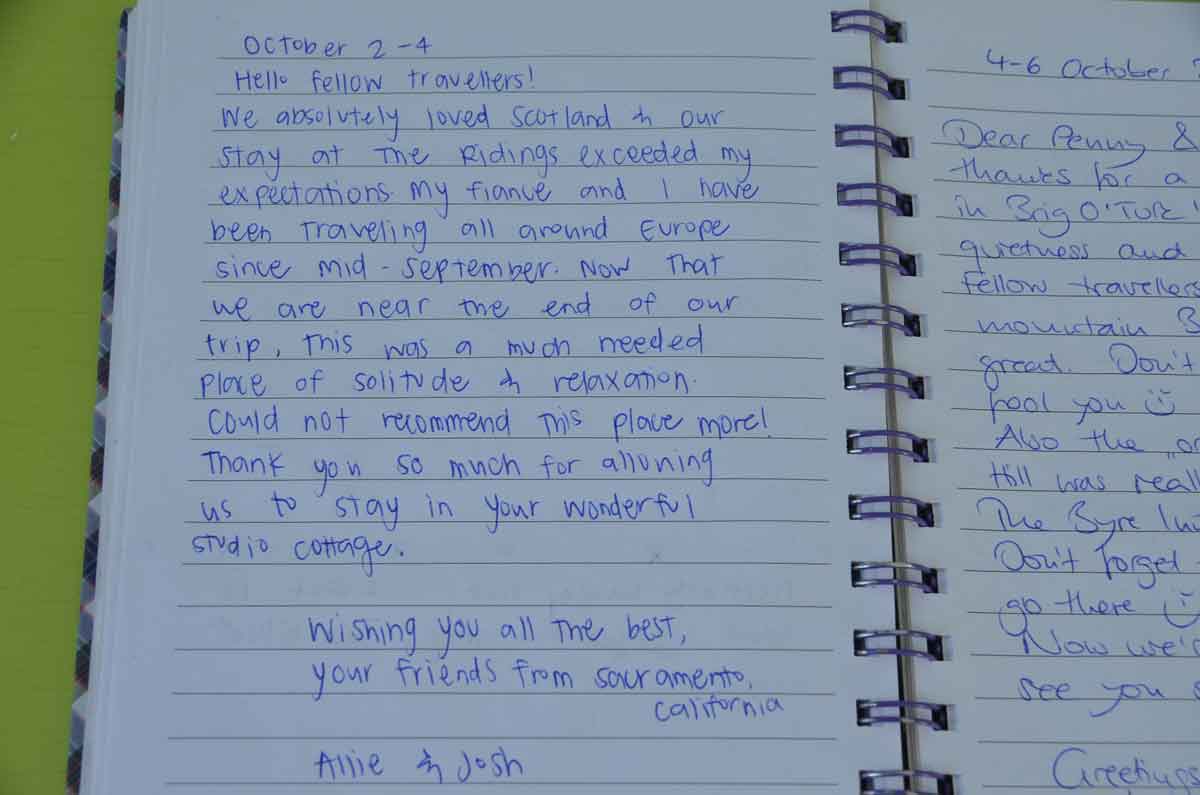 October 2-4
Hello fellow travellers!
We absolutely loved Scotland & our
stay at The Ridings exceeded my
expectations. My fiance and I have
been traveling all around Europe
since mid-September. Now that
we are near the end of our
trip, this was a much needed
place of solitude & relaxation.
Could not recommend this place more!
Thank you so much for allowing
us to stay in your wonderful
studio cottage.
Wishing you all the best,
your friends from Sacramento,
California
Allie & Josh
4-6 October
Dear Penny &
thanks for a
in Brig O'Turk
quietness and
fellow travellers
mountain B
great. Don't
fool you ☺
Also the
Hill was
The Byre
Don't forget
go there ☺
Now we're
see you
Greetings